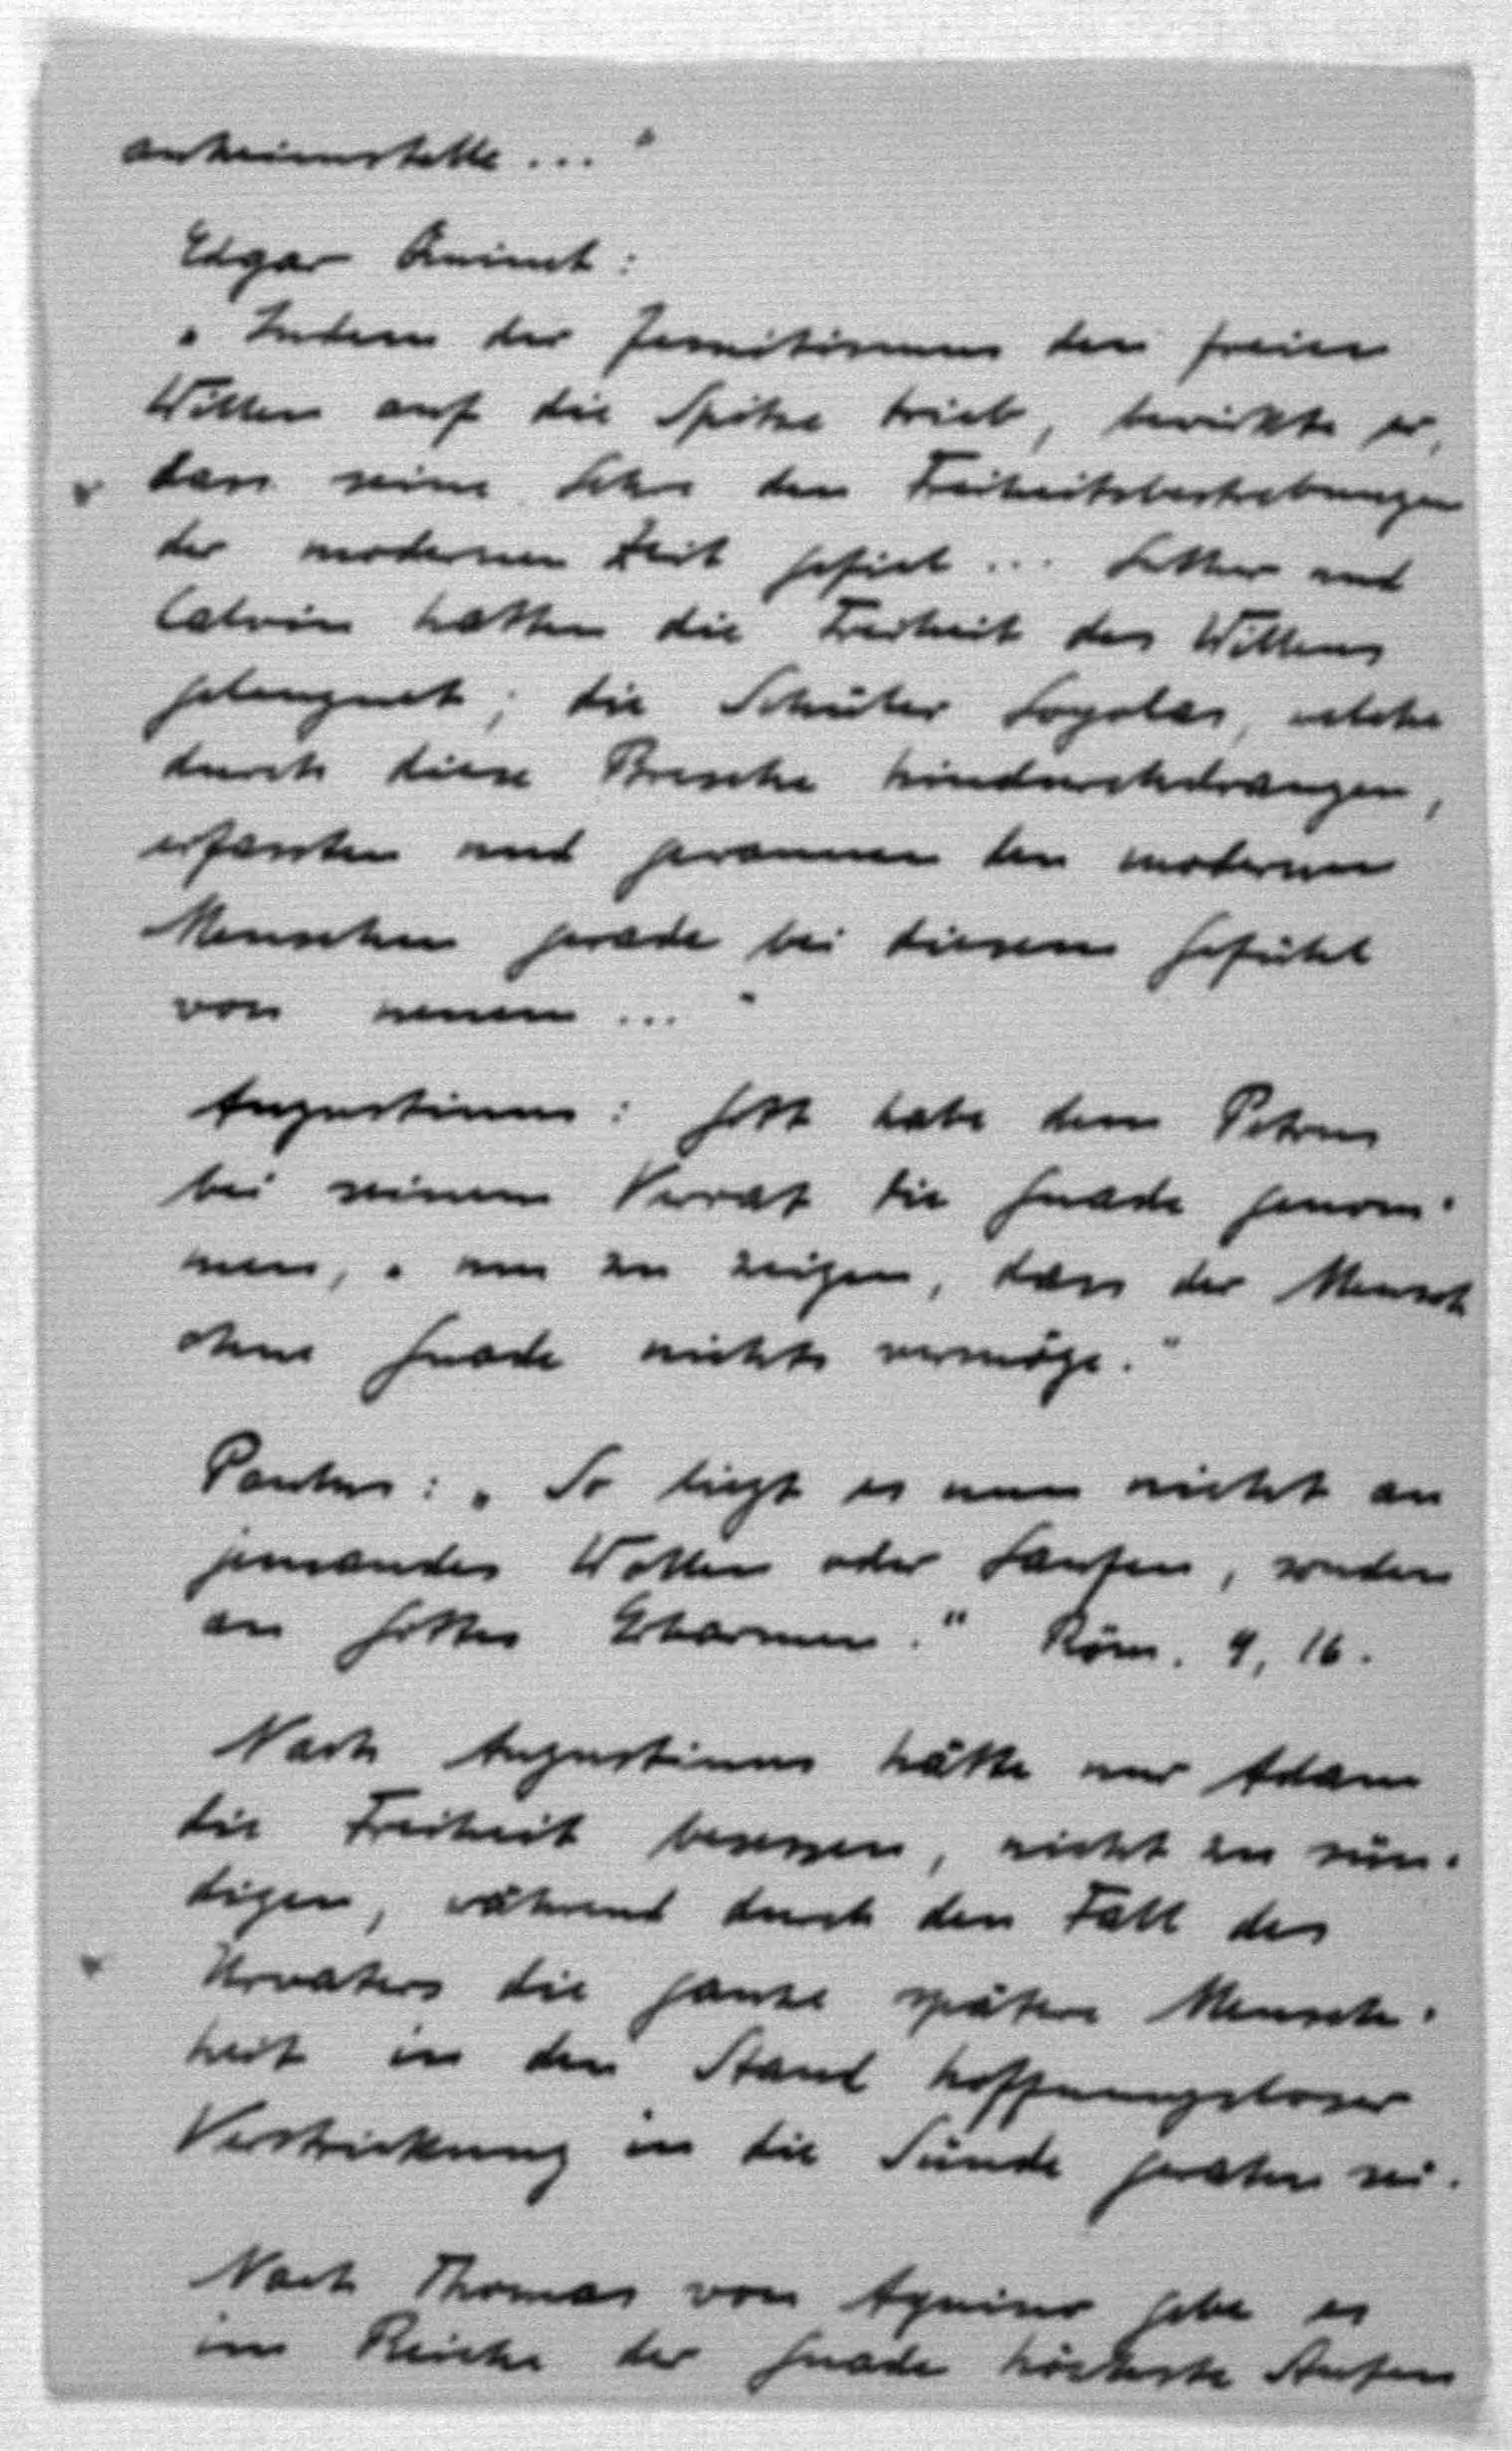 anheimstelle ... "
Edgar Quinet:
„Indem der Jesuitismus den freien
Willen auf die Spitze trieb, bewirkte er,
dass seine Lehre den Freiheitsbestrebungen
der modernen Zeit gefiel ... Luther und
Calvin hatten die Freiheit des Willens
geleugnet; die Schüler Loyolas, welche
durch diese Bresche hindurchdrangen,
erfassten und gewannen den modernen
Menschen gerade bei diesem Gefühl
von neuem ... "
Augustinus: Gott habe dem Petrus
bei seinem Verrat die Gnade genom-
men, „um zu zeigen, dass der Mensch
ohne Gnade nichts vermöge."
Paulus: „So liegt es nun nicht an
jemandes Wollen oder Laufen, sondern
an Gottes Erbarmen." Röm. 9, 16.
Nach Augustinus hätte nur Adam
die Freiheit besessen, nicht zu sün-
digen, während durch den Fall des
Urvaters die ganze spätere Mensch-
heit in den Stand hoffnungsloser
Verstrickung in die Sünde geraten sei.
Nach Thomas von Aquino gebe es
im Reiche der Gnade höchste Stufen